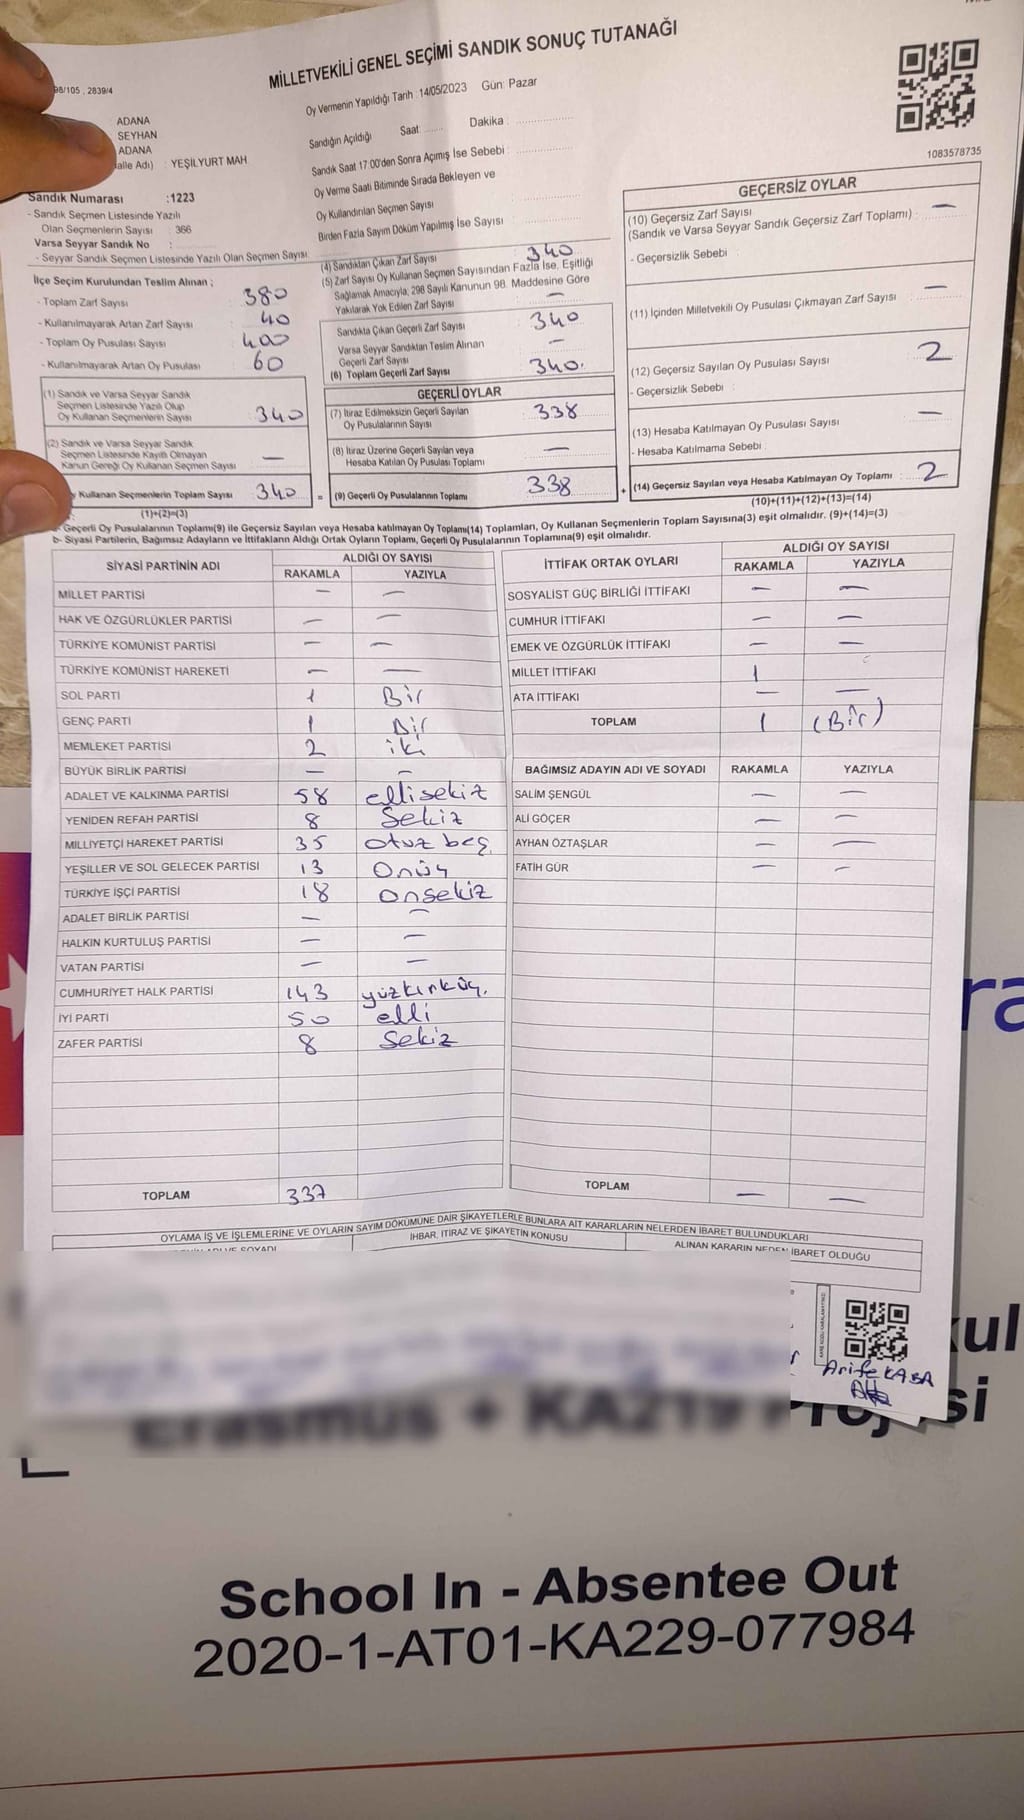 MİLLETVEKİLİ GENEL SEÇİMİ SANDIK SONUÇ TUTANAĞI
98/105 , 2839/4
ADANA
SEYHAN
ADANA
alle Adı) : YEŞİLYURT MAH
Sandık Numarası :1223
- Sandık Seçmen Listesinde Yazılı
Olan Seçmenlerin Sayısı : 366
Varsa Seyyar Sandık No :
- Seyyar Sandık Seçmen Listesinde Yazılı Olan Seçmen Sayısı
Oy Vermenin Yapıldığı Tarih : 14/05/2023 Gün: Pazar
Sandığın Açıldığı Saat: Dakika :
Sandık Saat 17.00'den Sonra Açımış İse Sebebi :
Oy Verme Saati Bitiminde Sırada Bekleyen ve
Oy Kullandırılan Seçmen Sayısı
Birden Fazla Sayım Döküm Yapılmış İse Sayısı
1083578735
İlçe Seçim Kurulundan Teslim Alınan ;
- Toplam Zarf Sayısı : 380
- Kullanılmayarak Artan Zarf Sayısı : 40
- Toplam Oy Pusulası Sayısı : 400
- Kullanılmayarak Artan Oy Pusulası : 60
(1) Sandık ve Varsa Seyyar Sandık
Seçmen Listesinde Yazılı Olup
Oy Kullanan Seçmenlerin Sayısı 340
(2) Sandık ve Varsa Seyyar Sandık
Seçmen Listesinde Kayıtlı Olmayan
Kanun Gereği Oy Kullanan Seçmen Sayısı —
y Kullanan Seçmenlerin Toplam Sayısı 340 =
(1)+(2)=(3)
(4) Sandıktan Çıkan Zarf Sayısı 340
(5) Zarf Sayısı Oy Kullanan Seçmen Sayısından Fazla İse, Eşitliği
Sağlamak Amacıyla, 298 Sayılı Kanunun 98. Maddesine Göre
Yakılarak Yok Edilen Zarf Sayısı —
Sandıkta Çıkan Geçerli Zarf Sayısı : 340
Varsa Seyyar Sandıktan Teslim Alınan
Geçerli Zarf Sayısı : —
(6) Toplam Geçerli Zarf Sayısı : 340.
GEÇERLİ OYLAR
(7) İtiraz Edilmeksizin Geçerli Sayılan
Oy Pusulalarının Sayısı 338
(8) İtiraz Üzerine Geçerli Sayılan veya
Hesaba Katılan Oy Pusulası Toplamı —
(9) Geçerli Oy Pusulalarının Toplamı 338 +
GEÇERSİZ OYLAR
(10) Geçersiz Zarf Sayısı
(Sandık ve Varsa Seyyar Sandık Geçersiz Zarf Toplamı) : —
- Geçersizlik Sebebi :
(11) İçinden Milletvekili Oy Pusulası Çıkmayan Zarf Sayısı —
(12) Geçersiz Sayılan Oy Pusulası Sayısı : 2
- Geçersizlik Sebebi :
(13) Hesaba Katılmayan Oy Pusulası Sayısı : —
- Hesaba Katılmama Sebebi :
(14) Geçersiz Sayılan veya Hesaba Katılmayan Oy Toplamı : 2
(10)+(11)+(12)+(13)=(14)
a- Geçerli Oy Pusulalarının Toplamı(9) ile Geçersiz Sayılan veya Hesaba katılmayan Oy Toplamı(14) Toplamları, Oy Kullanan Seçmenlerin Toplam Sayısına(3) eşit olmalıdır. (9)+(14)=(3)
b- Siyasi Partilerin, Bağımsız Adayların ve İttifakların Aldığı Ortak Oyların Toplamı, Geçerli Oy Pusulalarının Toplamına(9) eşit olmalıdır.
SİYASİ PARTİNİN ADI ALDIĞI OY SAYISI
RAKAMLA YAZIYLA
MİLLET PARTİSİ — —
HAK VE ÖZGÜRLÜKLER PARTİSİ — —
TÜRKİYE KOMÜNİST PARTİSİ — —
TÜRKİYE KOMÜNİST HAREKETİ — —
SOL PARTİ 1 Bir
GENÇ PARTİ 1 Bir
MEMLEKET PARTİSİ 2 iki
BÜYÜK BİRLİK PARTİSİ — —
ADALET VE KALKINMA PARTİSİ 58 ellisekiz
YENİDEN REFAH PARTİSİ 8 Sekiz
MİLLİYETÇİ HAREKET PARTİSİ 35 otuz beş
YEŞİLLER VE SOL GELECEK PARTİSİ 13 Onüç
TÜRKİYE İŞÇİ PARTİSİ 18 onsekiz
ADALET BİRLİK PARTİSİ — —
HALKIN KURTULUŞ PARTİSİ — —
VATAN PARTİSİ — —
CUMHURİYET HALK PARTİSİ 143 yüzkırküç.
İYİ PARTİ 50 elli
ZAFER PARTİSİ 8 Sekiz
TOPLAM 337
İTTİFAK ORTAK OYLARI ALDIĞI OY SAYISI
RAKAMLA YAZIYLA
SOSYALİST GÜÇ BİRLİĞİ İTTİFAKI — —
CUMHUR İTTİFAKI — —
EMEK VE ÖZGÜRLÜK İTTİFAKI — —
MİLLET İTTİFAKI 1
ATA İTTİFAKI — —
TOPLAM 1 (Bir)
BAĞIMSIZ ADAYIN ADI VE SOYADI RAKAMLA YAZIYLA
SALİM ŞENGÜL — —
ALİ GÖÇER — —
AYHAN ÖZTAŞLAR — —
FATİH GÜR — —
TOPLAM — —
OYLAMA İŞ VE İŞLEMLERİNE VE OYLARIN SAYIM DÖKÜMÜNE DAİR ŞİKAYETLERLE BUNLARA AİT KARARLARIN NELERDEN İBARET BULUNDUKLARI
İHBAR, İTİRAZ VE ŞİKAYETİN KONUSU
ALINAN KARARIN NEDEN İBARET OLDUĞU
Arife KABA
Erasmus + KA219 Projesi
School In - Absentee Out
2020-1-AT01-KA229-077984